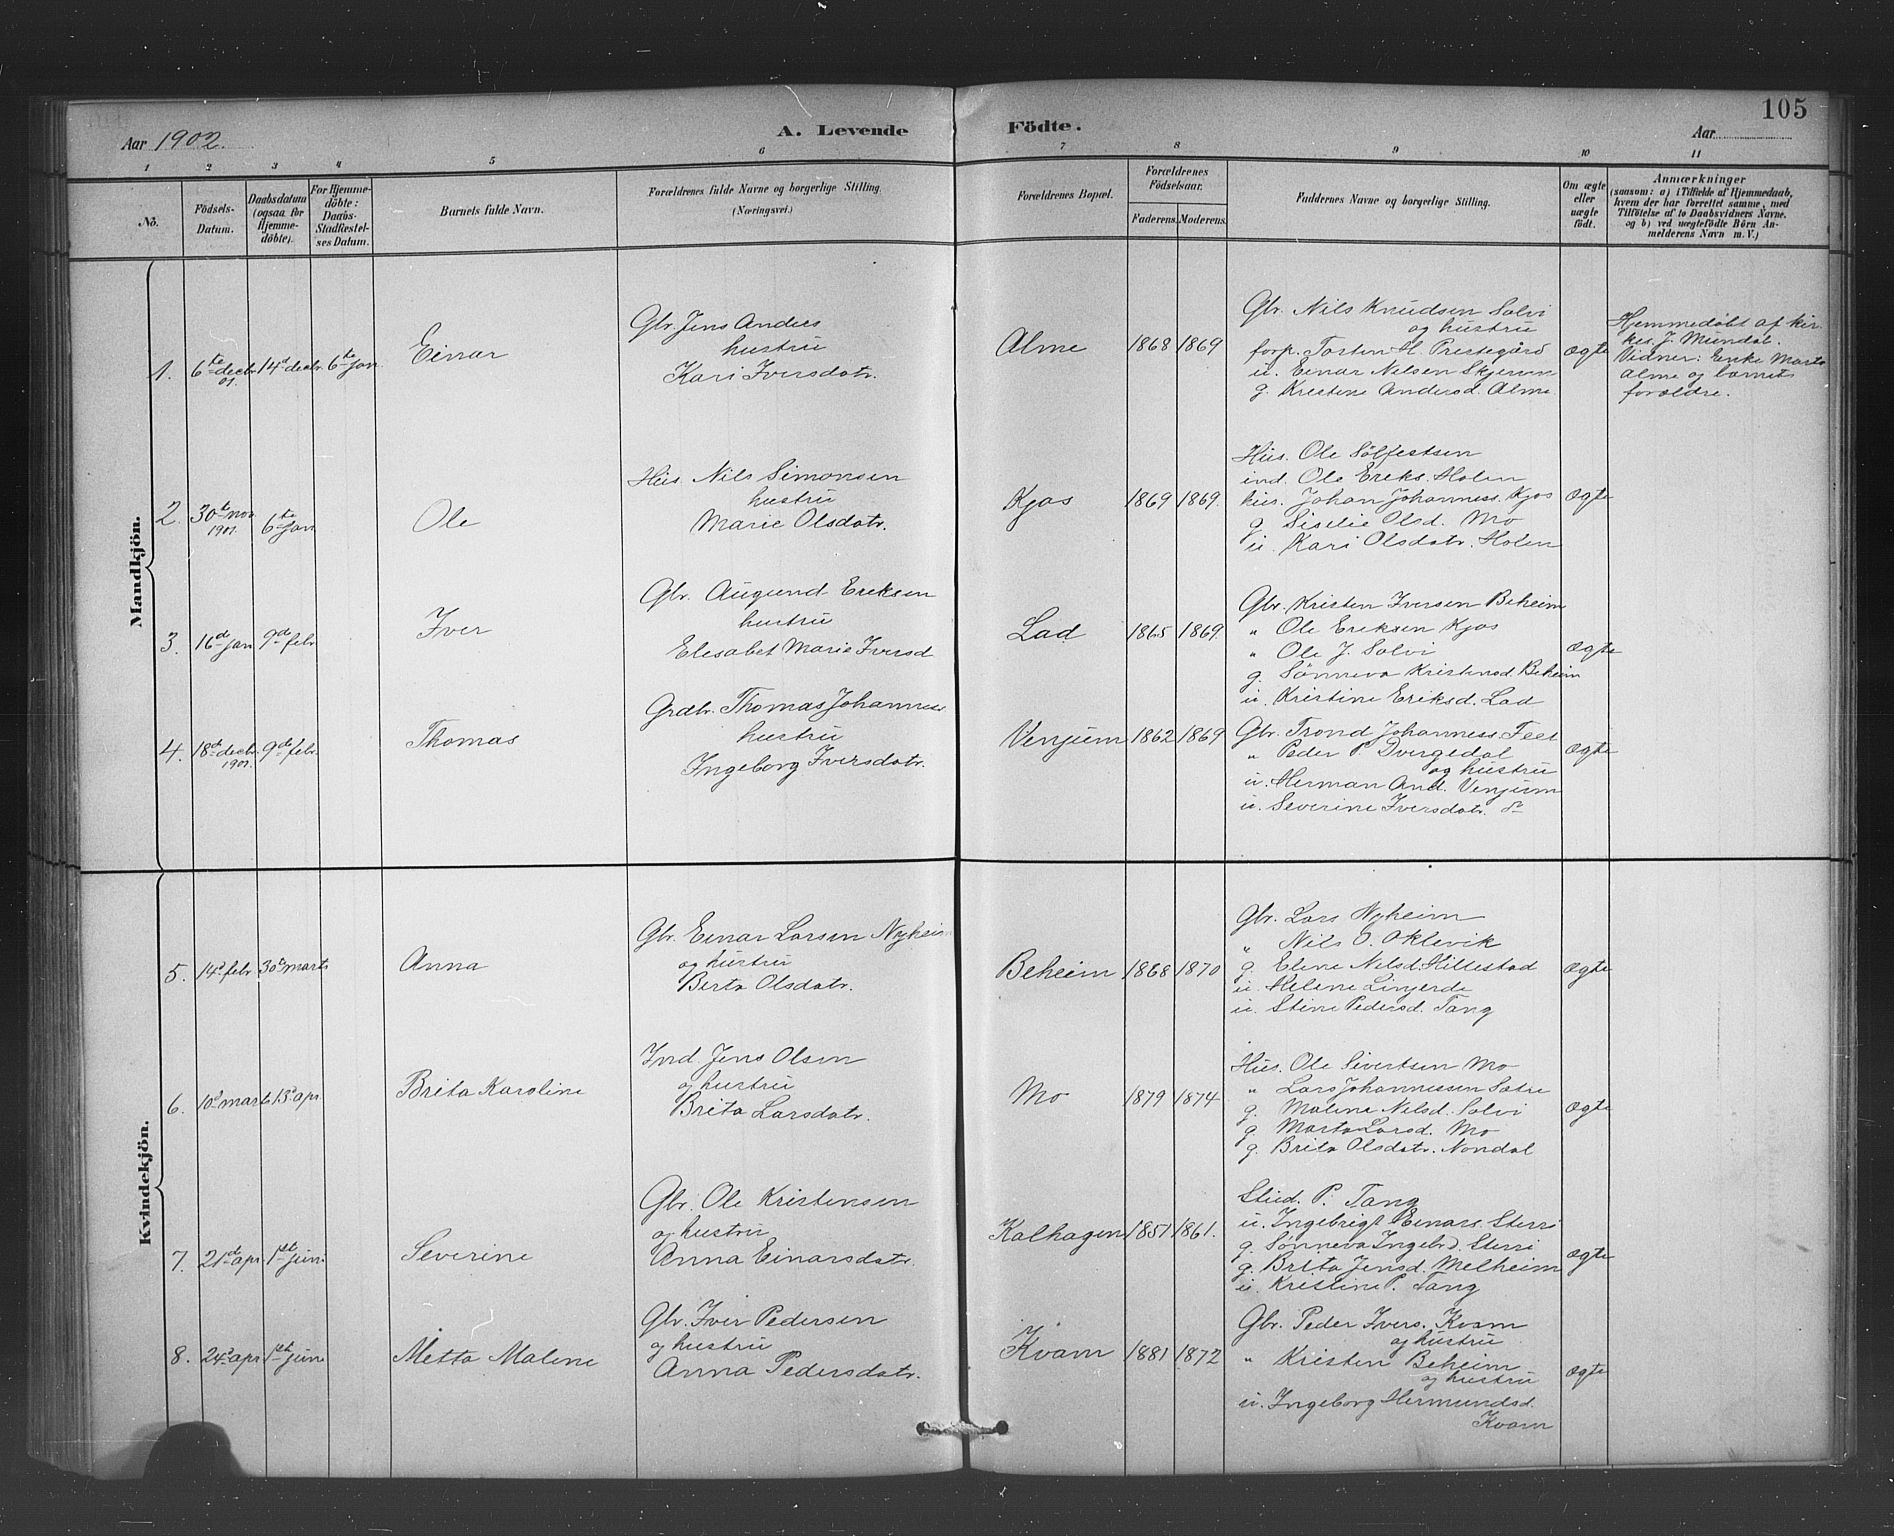 105
Aar 1902.
A. Levende Födte.
Aar
1 2 3 4 5 6 7 8 9 10 11
No.
Födsels-Datum.
Daabsdatum (ogsaa for Hjemme-döbte).
For Hjemme-döbte: Daabs-Stadfæstel-ses Datum.
Barnets fulde Navn.
Forældrenes fulde Navne og borgerlige Stilling.
(Næringsvei.)
Forældrenes Bopæl.
Forældrenes Födselsaar.
Faderens. Moderens.
Faddernes Navne og borgerlige Stilling.
Om ægte eller uægte födt.
Anmærkninger
(saasom: a) i Tilfælde af Hjemmedaab,
hvem der har forrettet samme, med
Tilföielse af to Daabsvidners Navne,
og b) ved uægtefödte Börn An-
melderens Navn m. V.)
Mandkjön.
1. 6te decbr. 01. 14d decbr. 6te jan
Einar
Gbr. Jens Anders
hustru
Kari Iversdatr.
Alme 1868 1869
Gbr. Nils Knudsen Solvi
og hustru
forp. Torsten H. Prestegård
u. Einar Nilsen Skjerven
g. Kristine Andersd. Alme
ægte
Hjemmedöbt af kir-
kes. J. Mundal.
Vidner: Enke Marta
Alme og barnets
forældre.
2. 30te nov 1901. 6te jan
Ole
Hus. Nils Simonsen
hustru
Marie Olsdatr.
Kjos 1869 1869.
Hus. Ole Sølfestsen
ind. Ole Eriks. Holen
hus. Johan Johanness. Kjos
g. Siselie Olsd. Mo
u. Kari Olsdatr. Holen
ægte
3. 16d jan 9de febr
Iver
Gbr. Augund Eriksen
hustru
Elesabet Marie Iversd
Lad 1865 1869.
Gbr. Kristen Iversen Beheim
" Ole Eriksen Kjos
" Ole J. Solvi
g. Sønneva Kristensd. Beheim
u. Kristine Eriksd. Lad
ægte
4. 18de decbr. 1901. 9de febr
Thomas
Grdbr. Thomas Johanness
hustru
Ingeborg Iversdatr.
Venjum 1862 1869
Gbr. Trond Johanness. Feet
" Peder P. Dvergedal
og hustru
u. Herman And. Venjum
u. Severine Iversdatr. do
ægte
Kvindekjön.
5. 14d febr 30te marts
Anna
Gbr. Einar Larsen Nyheim
og hustru
Berta Olsdatr.
Beheim 1868 1870
Gbr. Lars Nyheim
" Nils O. Oklevik
g. Eline Nilsd. Hillestad
u. Helene Linjerde
u. Stine Pedersd. Tang
ægte
6. 10d marts 13d apr.
Brita Karoline
Ind. Jens Olsen
og hustru
Brita Larsdatr.
Mo 1879 1874
Hus. Ole Sivertsen Mo
" Lars Johannessen Sætre
g. Malena Nilsd. Solvi
g. Marta Larsd. Mo
g. Brita Olsdatr. Nondal
ægte
7. 21d apr 1ste juni
Severine
Gbr. Ole Kristensen
og hustru
Anna Einarsdatr.
Kalhagen 1851 1861.
Stud. P. Tang
u. Ingebrigt Einars. Sterri
g. Sønneva Ingebr.d. Sterri
g. Brita Jensd. Melheim
u. Kristine P. Tang
ægte
8. 24d apr 1ste june
Metta Malene
Gbr. Iver Pedersen
og hustru
Anna Pedersdatr.
Kvam 1881 1872
Gbr. Peder Ivers. Kvam
og hustru
" Kristen Beheim
og hustru
u. Ingeborg Hermundsd.
Kvam
ægte